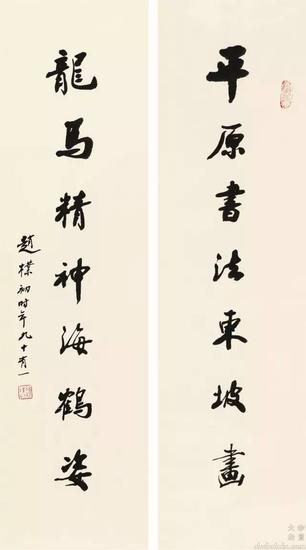 平原書法東坡畫
龍馬精神海鶴姿
趙樸初時年九十有一